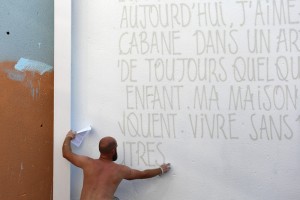 AUJOURD'HUI, J'AIME
CABANE DANS UN AR
DE TOUJOURS QUELQU
ENFANT. MA MAISON
NQUENT. VIVRE SANS
UTRES.